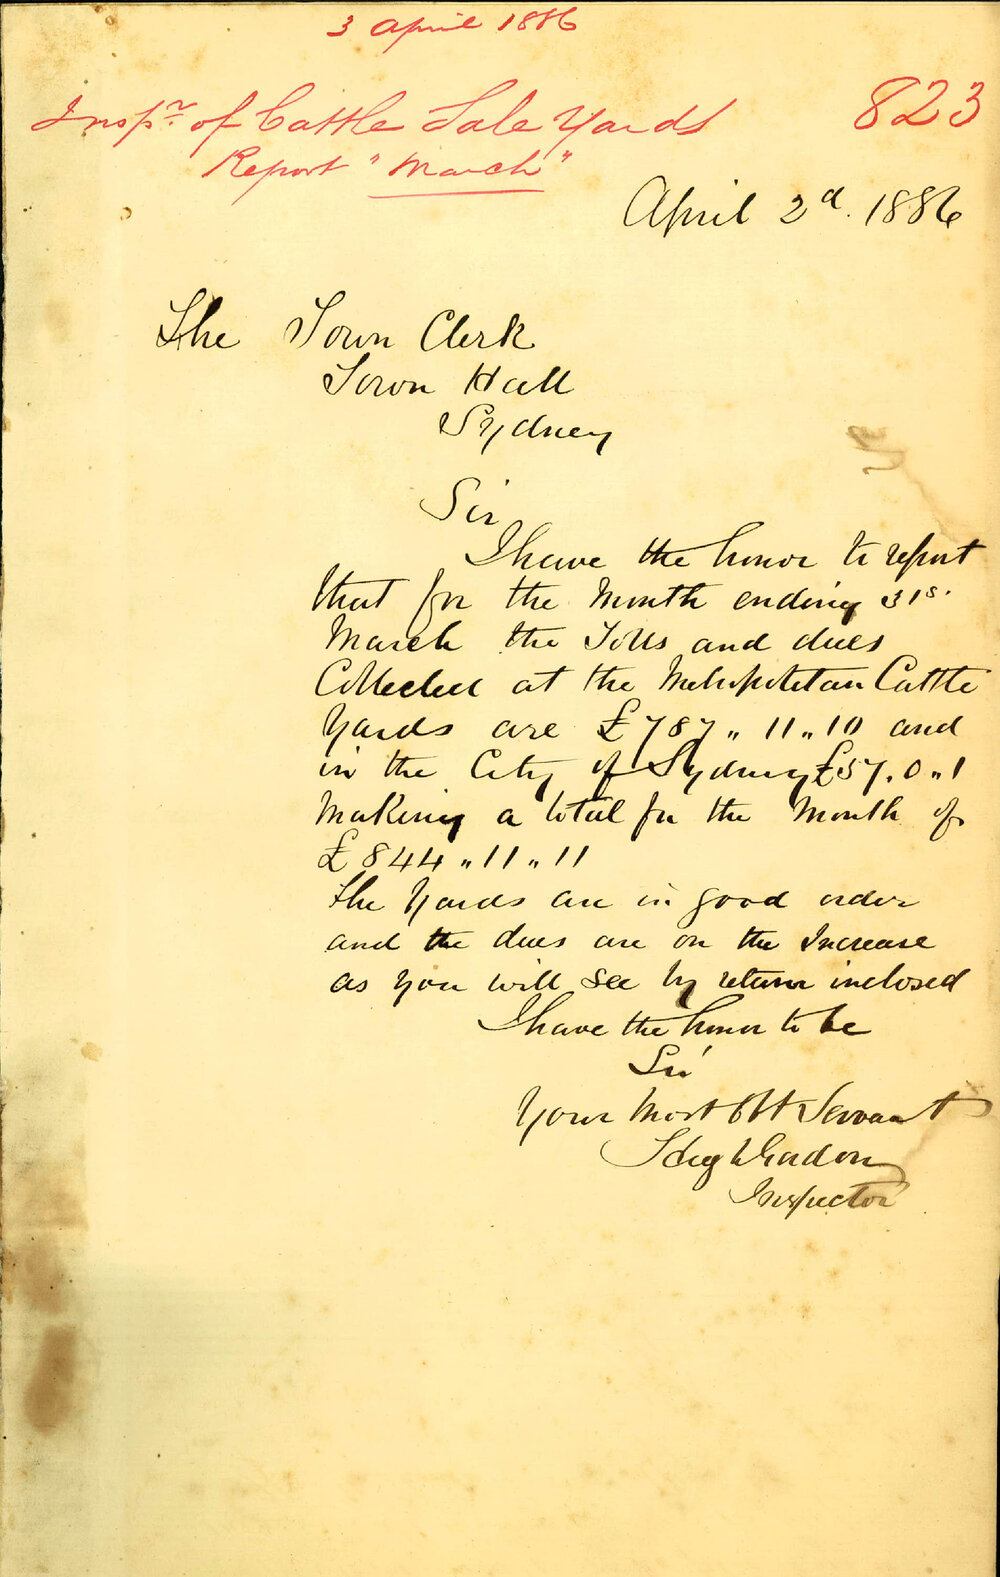 3 April 1886
Inspr. of Cattle Sale Yards 823
Report "March"
April 2d. 1886
The Town Clerk
Town Hall
Sydney
Sir
I have the honor to report
that for the Month ending 31s.
March the Tolls and dues
Collected at the Metropolitan Cattle
Yards are £787 " 11 " 10 and
in the City of Sydney £57 . 0 " 1
Making a total for the Month of
£844 " 11 " 11
the Yards are in good order
and the dues are on the Increase
as you will see by return inclosed
I have the honor to be
Sir
Your Most Obt Servant
Inspector